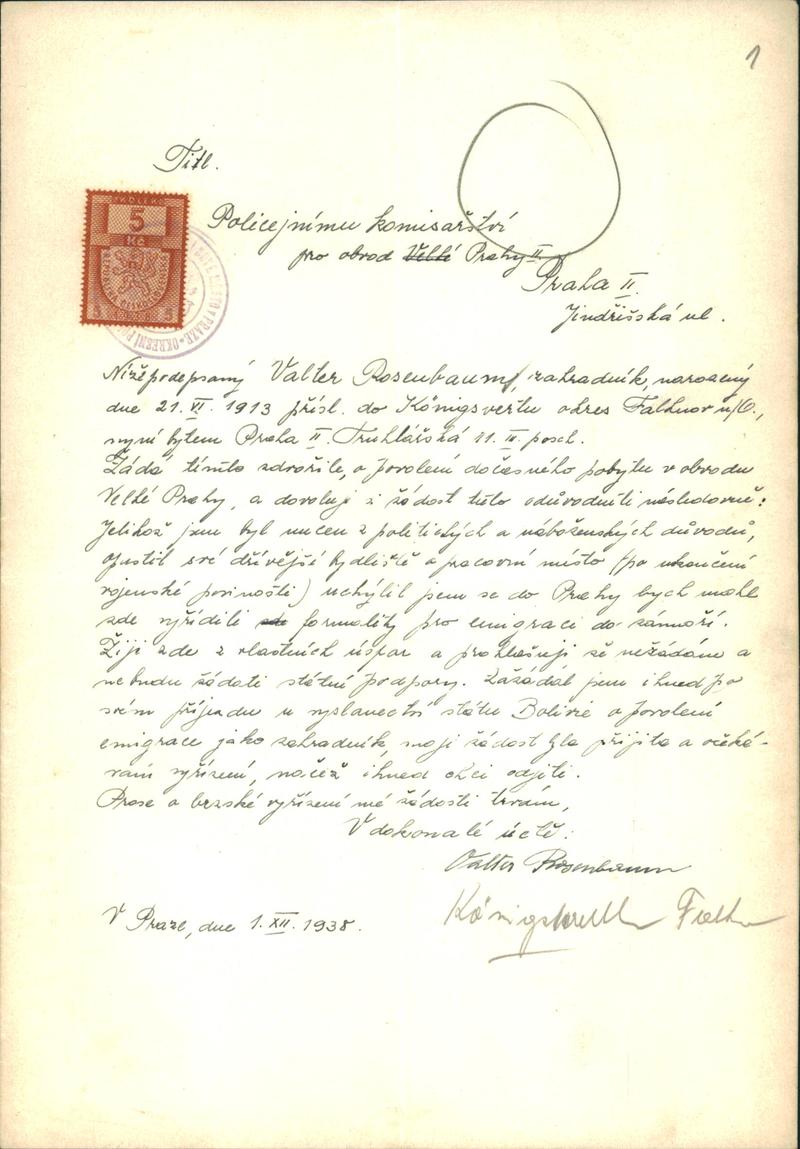 1
Titl.
KOLEK
5
Kč
5 1938 5
Policejnímu komisařství
pro obvod Velké Prahy II.
Praha II.
Jindřišská ul.
Nížepodepsaný Valter Rosenbaum, zahradník, narozený
dne 21. VI. 1913 přísl. do Königsvertu okres Falknov n/O.,
nyní bytem Praha II. Truhlářská 11. posch.
Žádá tímto zdvořile, o povolení dočasného pobytu v obvodu
Velké Prahy, a dovoluji si žádost tuto odůvodniti následovně:
Jelikož jsem byl nucen z politických a náboženských důvodů,
opustit své dřívější bydliště a pracovní místo (po ukončení
vojenské povinosti) uchýlil jsem se do Prahy bych mohl
zde vyříditi formality pro emigraci do zámoří.
Žiji zde z vlastních úspor a prohlašuji že nežádám a
nebudu žádati státní podpory. Zažádal jsem ihned po
svém příjezdu u vyslanectví státu Bolivie o povolení
emigrace jako zahradník, moji žádost byla přijita a očeká-
vám vyřízení, načež ihned chci odjeti.
Prose o brzské vyřízení mé žádosti trvám,
V dokonalé úctě:
Valter Rosenbaum
V Praze, dne 1. XII. 1938.